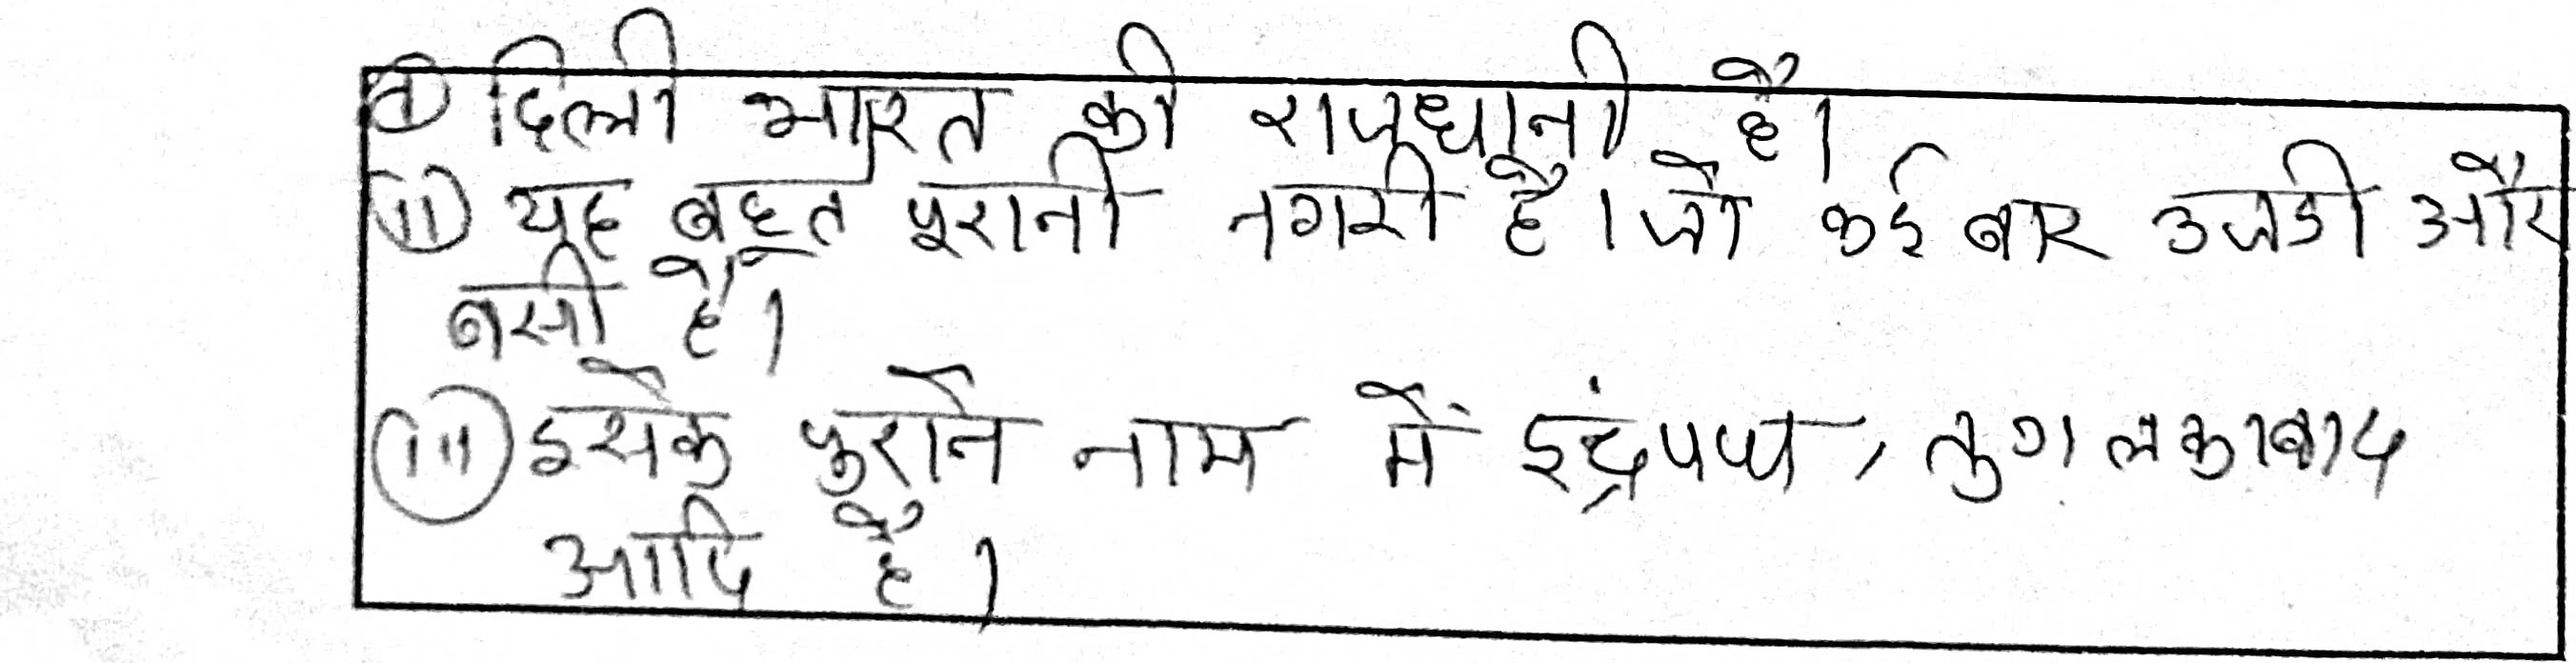 (i) दिल्ली भारत की राजधानी है।
(ii) यह बहूत पूरानी नगरी है। जो कई बार उजडी और
बसी है।
(iii) इसके पुराने नाम में इंद्रप्पथ, तुगलकाबाद
आदि है।